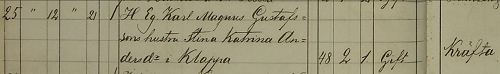 25 " 12 " 21 1 H Eg Karl Magnus Gustafs=
sons hustru Stina Katrina An=
dersdr i Klappa 48 2 1 Gift Kräfta